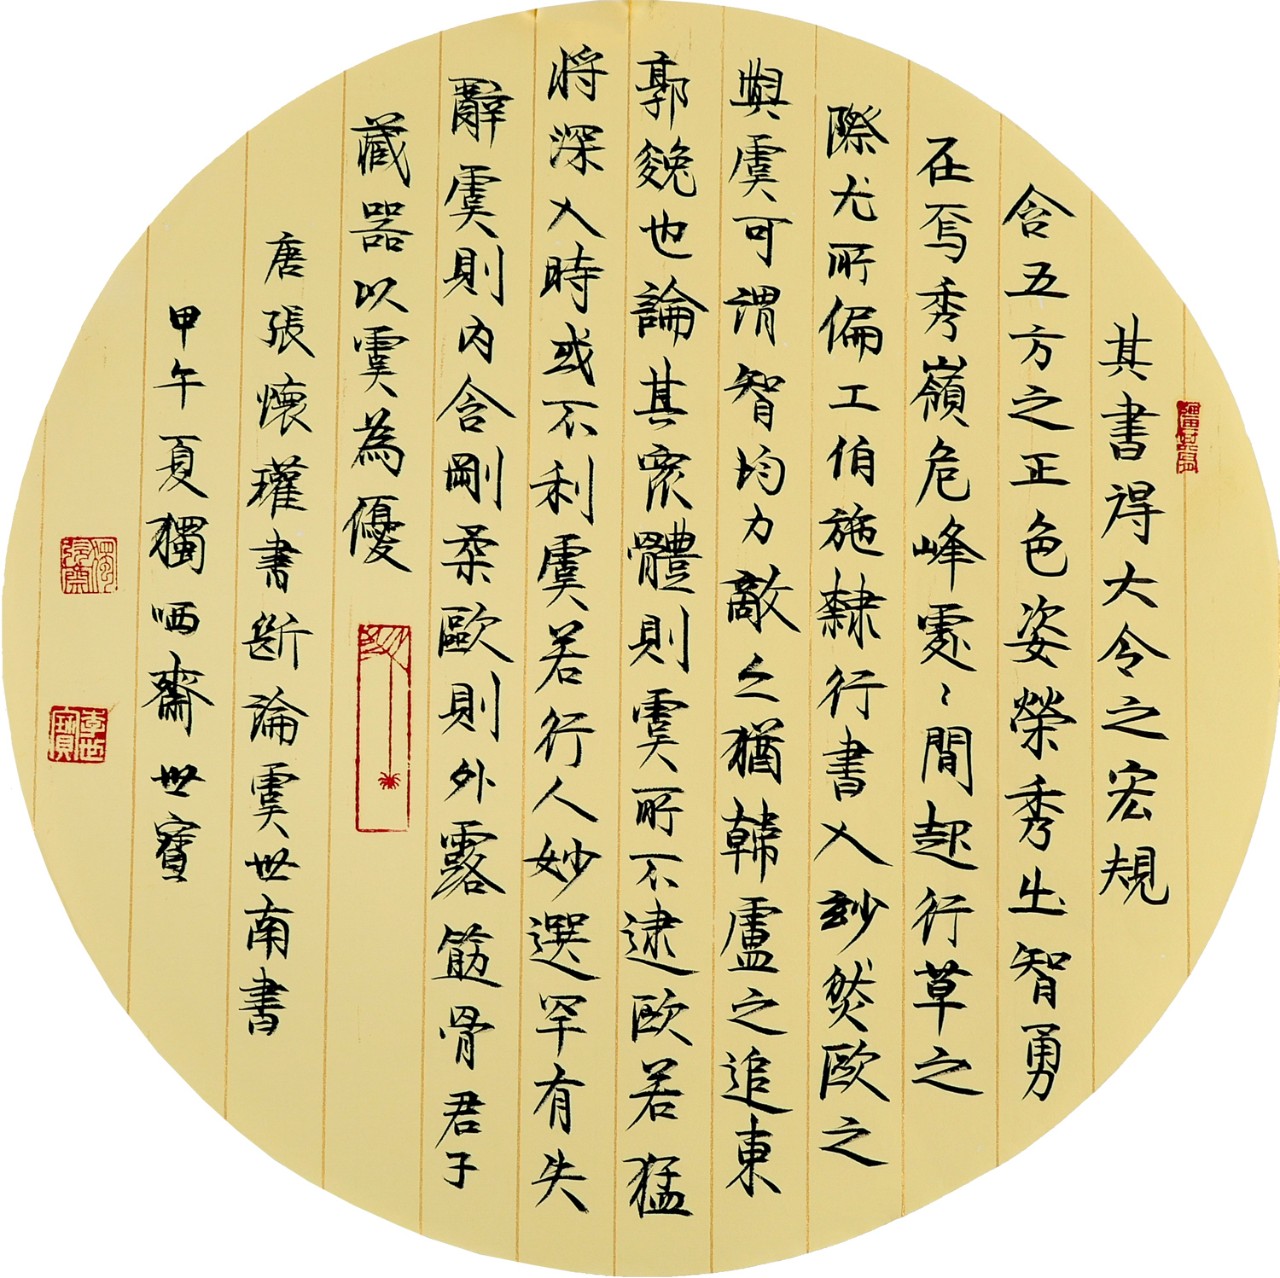 其書得大令之宏規
含五方之正色姿榮秀出智勇
在焉秀嶺危峰處〻間起行草之
際尤所偏工伯施隸行書入玅然歐之
與虞可謂智均力敵亦猶韓盧之追東
郭㕙也論其眾體則虞所不逮歐若猛
將深入時或不利虞若行人妙選罕有失
辭虞則內含剛柔歐則外露筋骨君子
藏器以虞為優
唐張懷瓘書斷論虞世南書
甲午夏獨哂齋世寶
李世寶